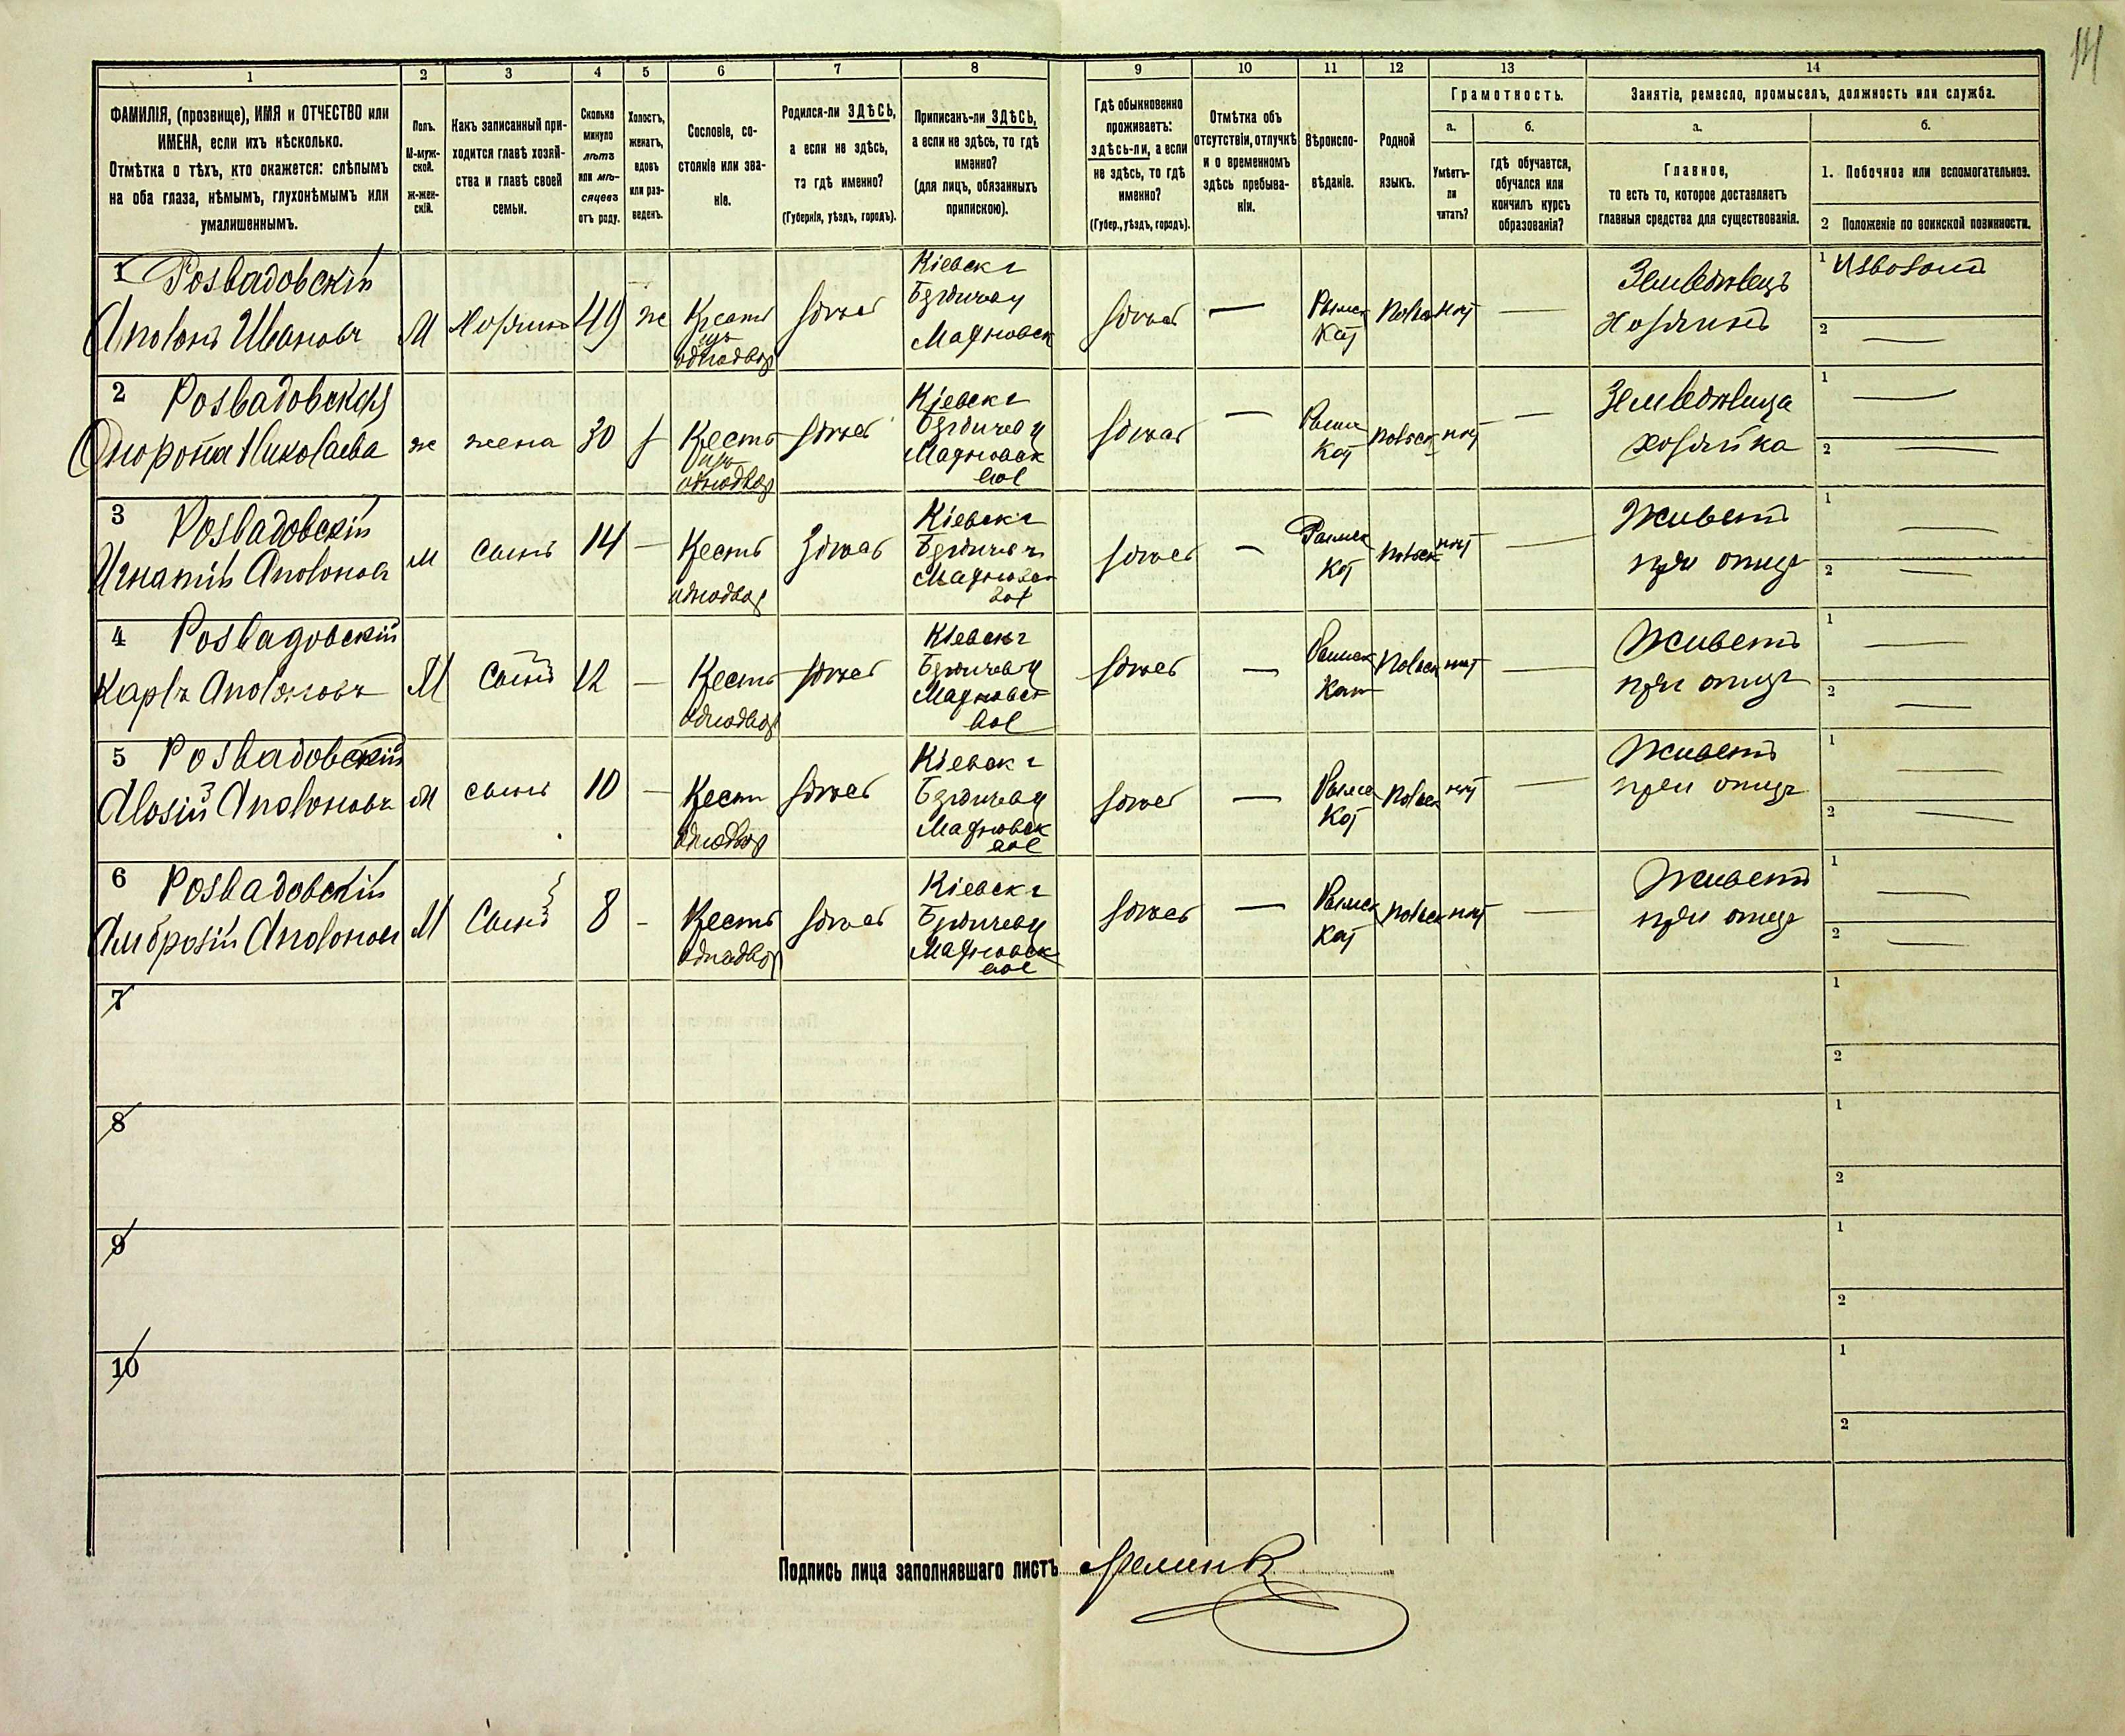 141
1 2 3 4 5 6 7 8 9 10 11 12 13 14
ФАМИЛІЯ, (прозвище), ИМЯ и ОТЧЕСТВО или
ИМЕНА, если ихъ нѣсколько.
Отмѣтка о тѣхъ, кто окажется: слѣпымъ
на оба глаза, нѣмымъ, глухонѣмымъ или
умалишеннымъ.
Полъ.
М-муж-
ской.
Ж-жен-
скій.
Какъ записанный при-
ходится главѣ хозяй-
ства и главѣ своей
семьи.
Сколько
минуло
лѣтъ
или мѣ-
сяцевъ
отъ роду.
Холостъ,
женатъ,
вдовъ
или раз-
веденъ.
Сословіе, со-
стояніе или зва-
ніе.
Родился-ли ЗДѢСЬ,
а если не здѣсь,
то гдѣ именно?
(Губернія, уѣздъ, городъ).
Приписанъ-ли ЗДѢСЬ,
а если не здѣсь, то гдѣ
именно?
(для лицъ, обязанныхъ
припискою).
Гдѣ обыкновенно
проживаетъ:
здѣсь-ли, а если
не здѣсь, то гдѣ
именно?
(Губер., уѣздъ, городъ).
Отмѣтка объ
отсутствіи, отлучкѣ
и о временномъ
здѣсь пребыва-
ніи.
Вѣроиспо-
вѣданіе.
Родной
языкъ.
Грамотность.
а.
Умѣетъ-
ли
читать?
б.
гдѣ обучается,
обучался или
кончилъ курсъ
образованія?
Занятіе, ремесло, промыселъ, должность или служба.
а.
Главное,
то есть то, которое доставляетъ
главныя средства для существованія.
б.
1. Побочное или вспомогательное.
2 Положеніе по воинской повинности.
1 Розвадовскій
Аполонъ Ивановъ М Хозяинъ 49 ж Крестъ
изъ
однодвор здѣсь Кіевск г
Бердичев у
Махновск здѣсь — Римск
Кат Польск нѣт — Земледѣлецъ
Хозяинъ 1 Извозомъ
2 —
2 Розвадовская
Николаева ж жена 30 Крестъ
изъ
однодвор здѣсь Кіевск г
Бердичев у
Махновск
вол здѣсь — Римск
Кат Польск нѣт — Земледѣлица
хозяйка 1 —
2 —
3 Розвадовскій
Игнатій Аполоновъ м сынъ 14 — Крестъ
однодвор здѣсь Кіевск г
Бердичев у
Махновск
вол здѣсь — Римск
Кат Польск нѣт — Живетъ
при отцѣ 1 —
2 —
4 Розвадовскій
Карлъ Аполоновъ М сынъ 12 — Крестъ
однодвор здѣсь Кіевск г
Бердичев у
Махновск
вол здѣсь — Римск
Кат Польск нѣт — Живетъ
при отцѣ 1 —
2 —
5 Розвадовскій
Алозій Аполоновъ М сынъ 10 — Крестъ
однодвор здѣсь Кіевск г
Бердичев у
Махновск
вол здѣсь — Римск
Кат Польск нѣт — Живетъ
при отцѣ 1 —
2 —
6 Розвадовскій
Амброзій Аполоновъ М Сынъ 8 - Крестъ
однодвор здѣсь Кіевск г
Бердичев у
Махновск
вол здѣсь — Римск
Кат Польск нѣт — Живетъ
при отцѣ 1 —
2 —
7 1
2
8 1
2
9 1
2
10 1
2
Подпись лица заполнявшаго листъ